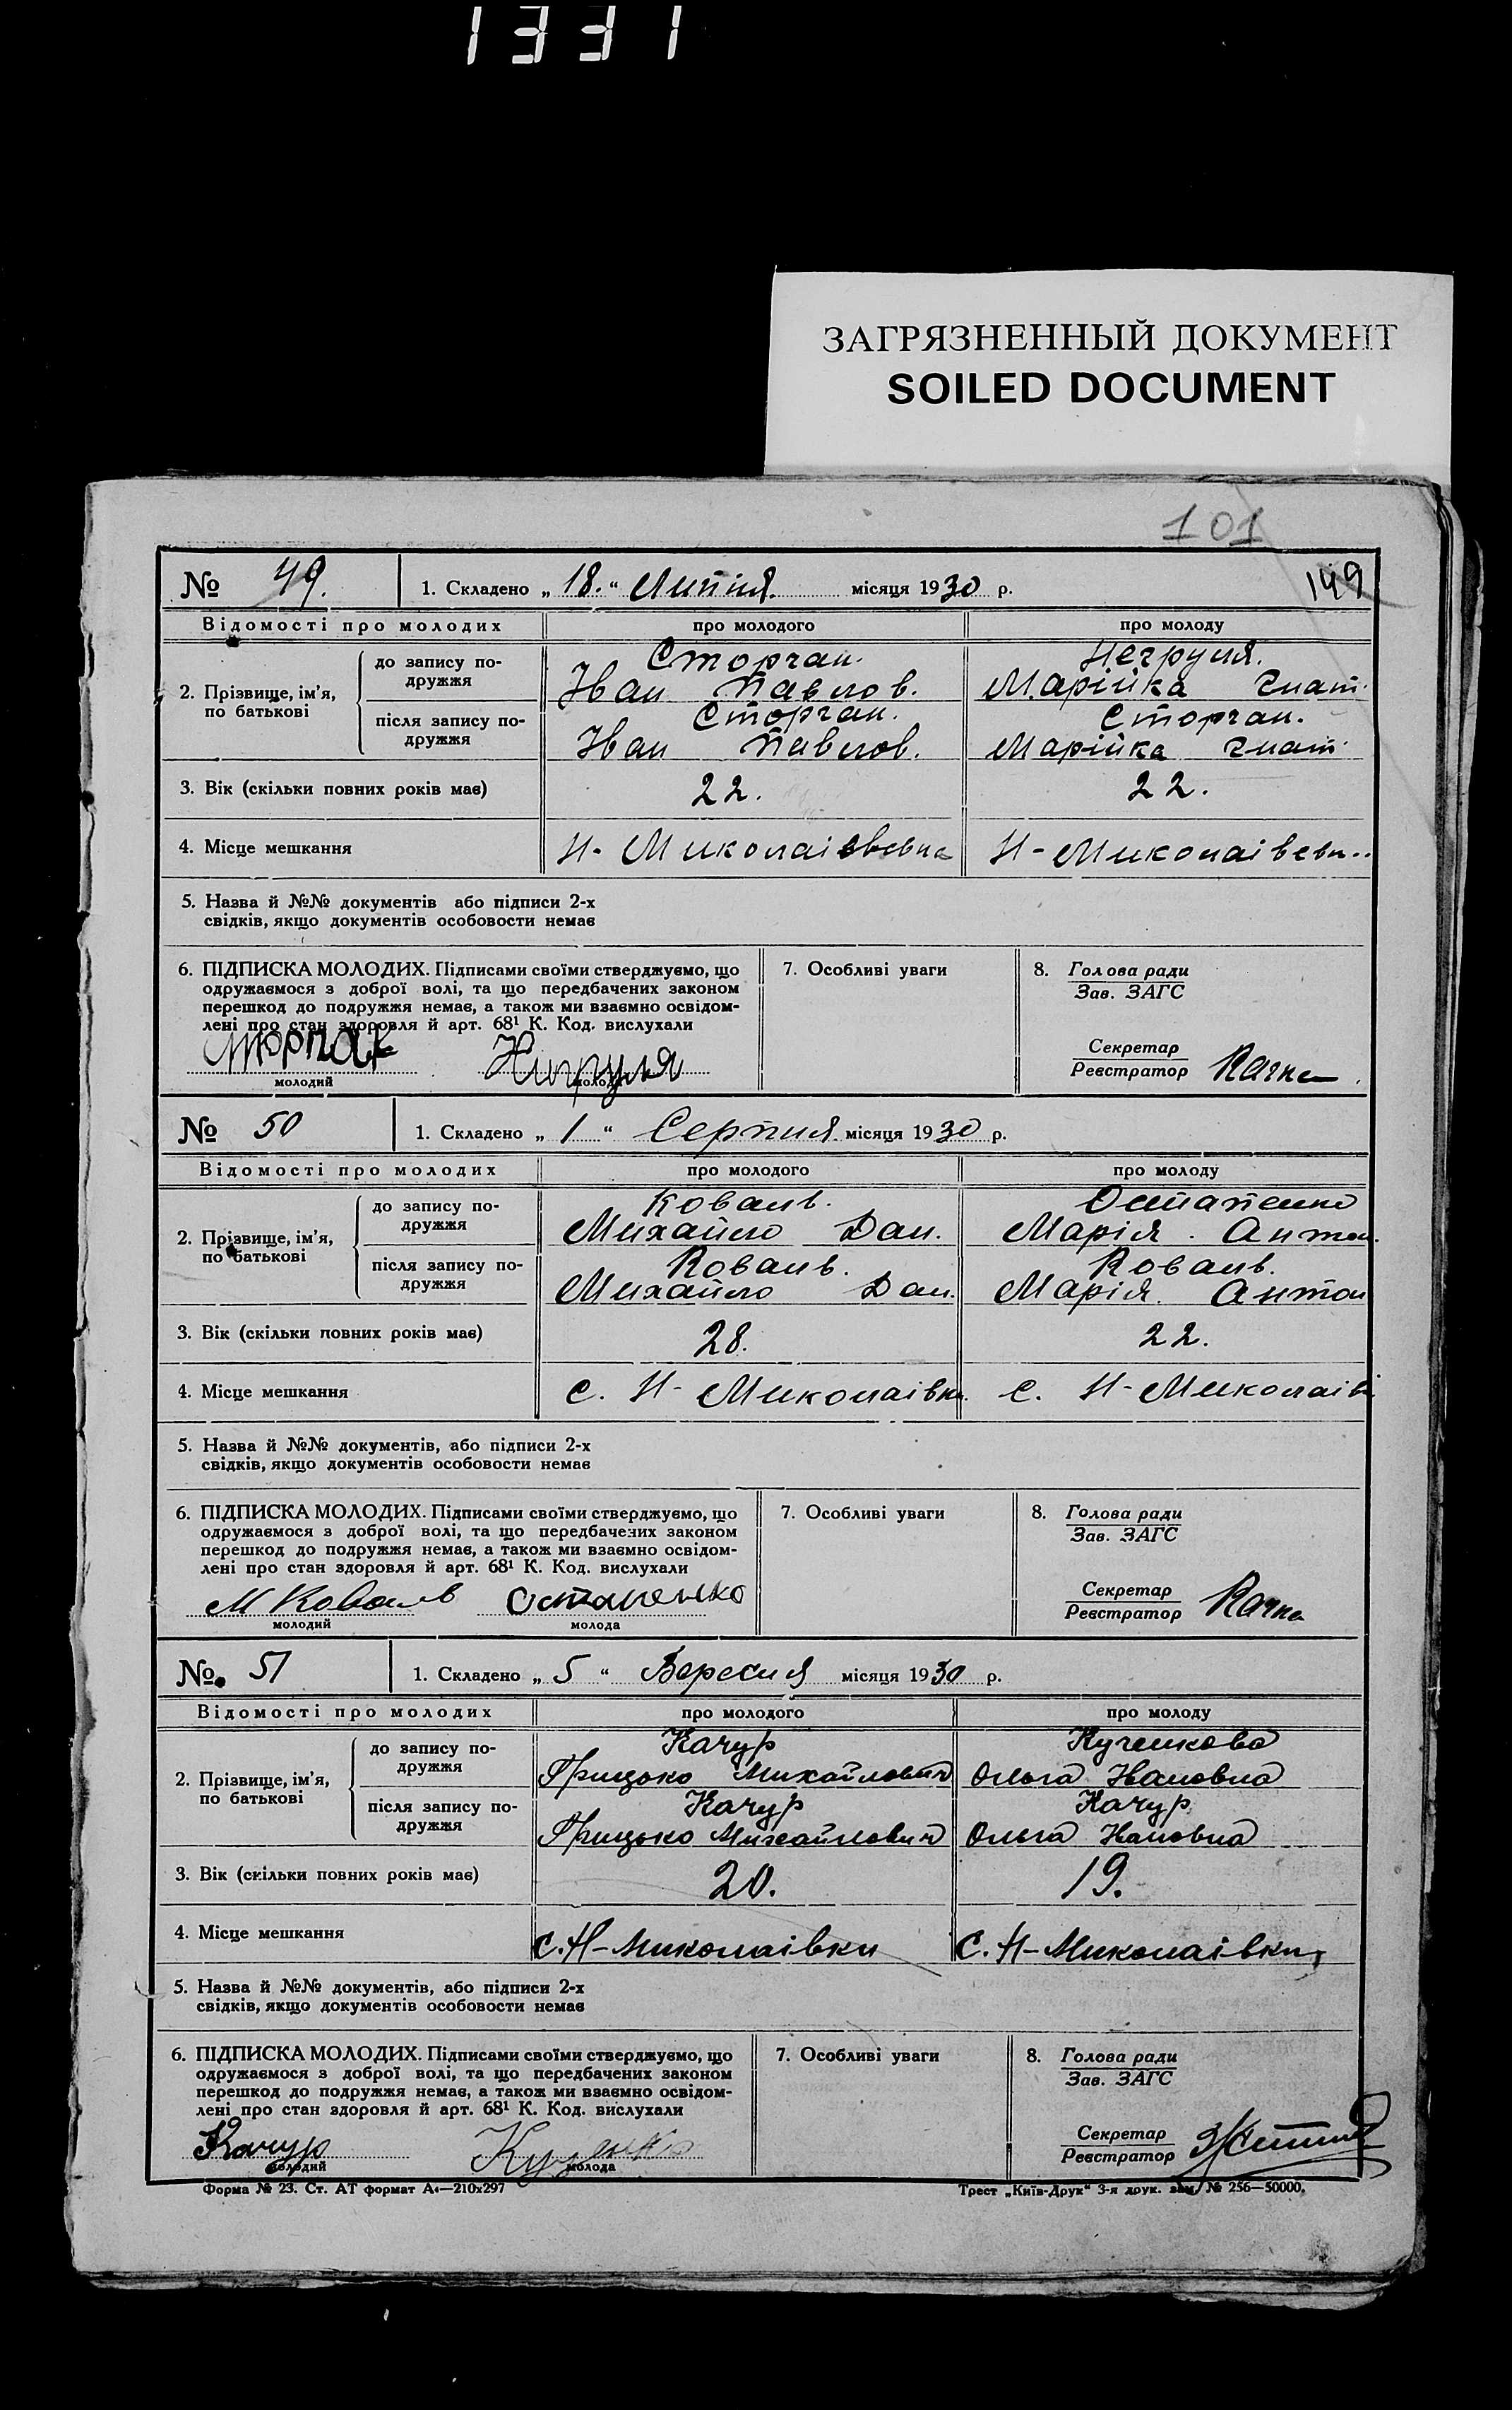 1331
ЗАГРЯЗНЕННЫЙ ДОКУМЕНТ
SOILED DOCUMENT
101
149
№ 49. 1. Складено „ 18. “ Липня. місяця 1930 р.
Відомості про молодих про молодого про молоду
2. Прізвище, ім’я, по батькові
до запису по-
дружжя
Сторчак.
Іван Павлов.
Негруля.
Марійка Гнат.
після запису по-
дружжя
Сторчак.
Іван Павлов.
Сторчак.
Марійка Гнат.
3. Вік (скільки повних років має) 22. 22.
4. Місце мешкання Н-
5. Назва й №№ документів або підписи 2-х
свідків, якщо документів особовости немає
6. ПІДПИСКА МОЛОДИХ. Підписами своїми стверджуємо, що
одружаємося з доброї волі, та що передбачених законом
перешкод до подружжя немає, а також ми взаємно освідом-
лені про стан здоровля й арт. 68¹ К. Код. вислухали
молодий молода
7. Особливі уваги
8. Голова ради
Зав. ЗАГС
Секретар
Реєстратор
№ 50 1. Складено „ 1 “ Серпня місяця 1930 р.
Відомості про молодих про молодого про молоду
2. Прізвище, ім’я,
по батькові
до запису по-
дружжя
Коваль.
Михайло Дан.
Остапенко
Марія. Антон.
після запису по-
дружжя
Коваль.
Михайло Дан.
Коваль.
Марія. Антон
3. Вік (скільки повних років має) 28. 22.
4. Місце мешкання с. Н-Миколаівки. с. Н-Миколаівк
5. Назва й №№ документів, або підписи 2-х
свідків, якщо документів особовости немає
6. ПІДПИСКА МОЛОДИХ. Підписами своїми стверджуємо, що
одружаємося з доброї волі, та що передбачених законом
перешкод до подружжя немає, а також ми взаємно освідом-
лені про стан здоровля й арт. 68¹ К. Код. вислухали
М Коваль Остапенко
молодий молода
7. Особливі уваги
8. Голова ради
Зав. ЗАГС
Секретар
Реєстратор
№ 51 1. Складено „ 5 “ Вересня місяця 1930 р.
Відомості про молодих про молодого про молоду
2. Прізвище, ім’я,
по батькові
до запису по-
дружжя
Качур
Грицько Михайлович
Кученкова
Ольга Івановна
після запису по-
дружжя
Качур
Грицько Михайлович
Качур
Ольга Івановна
3. Вік (скільки повних років має) 20. 19.
4. Місце мешкання с. Н-Миколаівки с. Н-Миколаівки,
5. Назва й №№ документів, або підписи 2-х
свідків, якщо документів особовости немає
6. ПІДПИСКА МОЛОДИХ. Підписами своїми стверджуємо, що
одружаємося з доброї волі, та що передбачених законом
перешкод до подружжя немає, а також ми взаємно освідом-
лені про стан здоровля й арт. 68¹ К. Код. вислухали
Качур
молодий молода
7. Особливі уваги
8. Голова ради
Зав. ЗАГС
Секретар
Реєстратор
Форма № 23. Ст. АТ формат А₄—210х297 Трест „Київ-Друк“ 3-я друк. зам. № 256—50000.